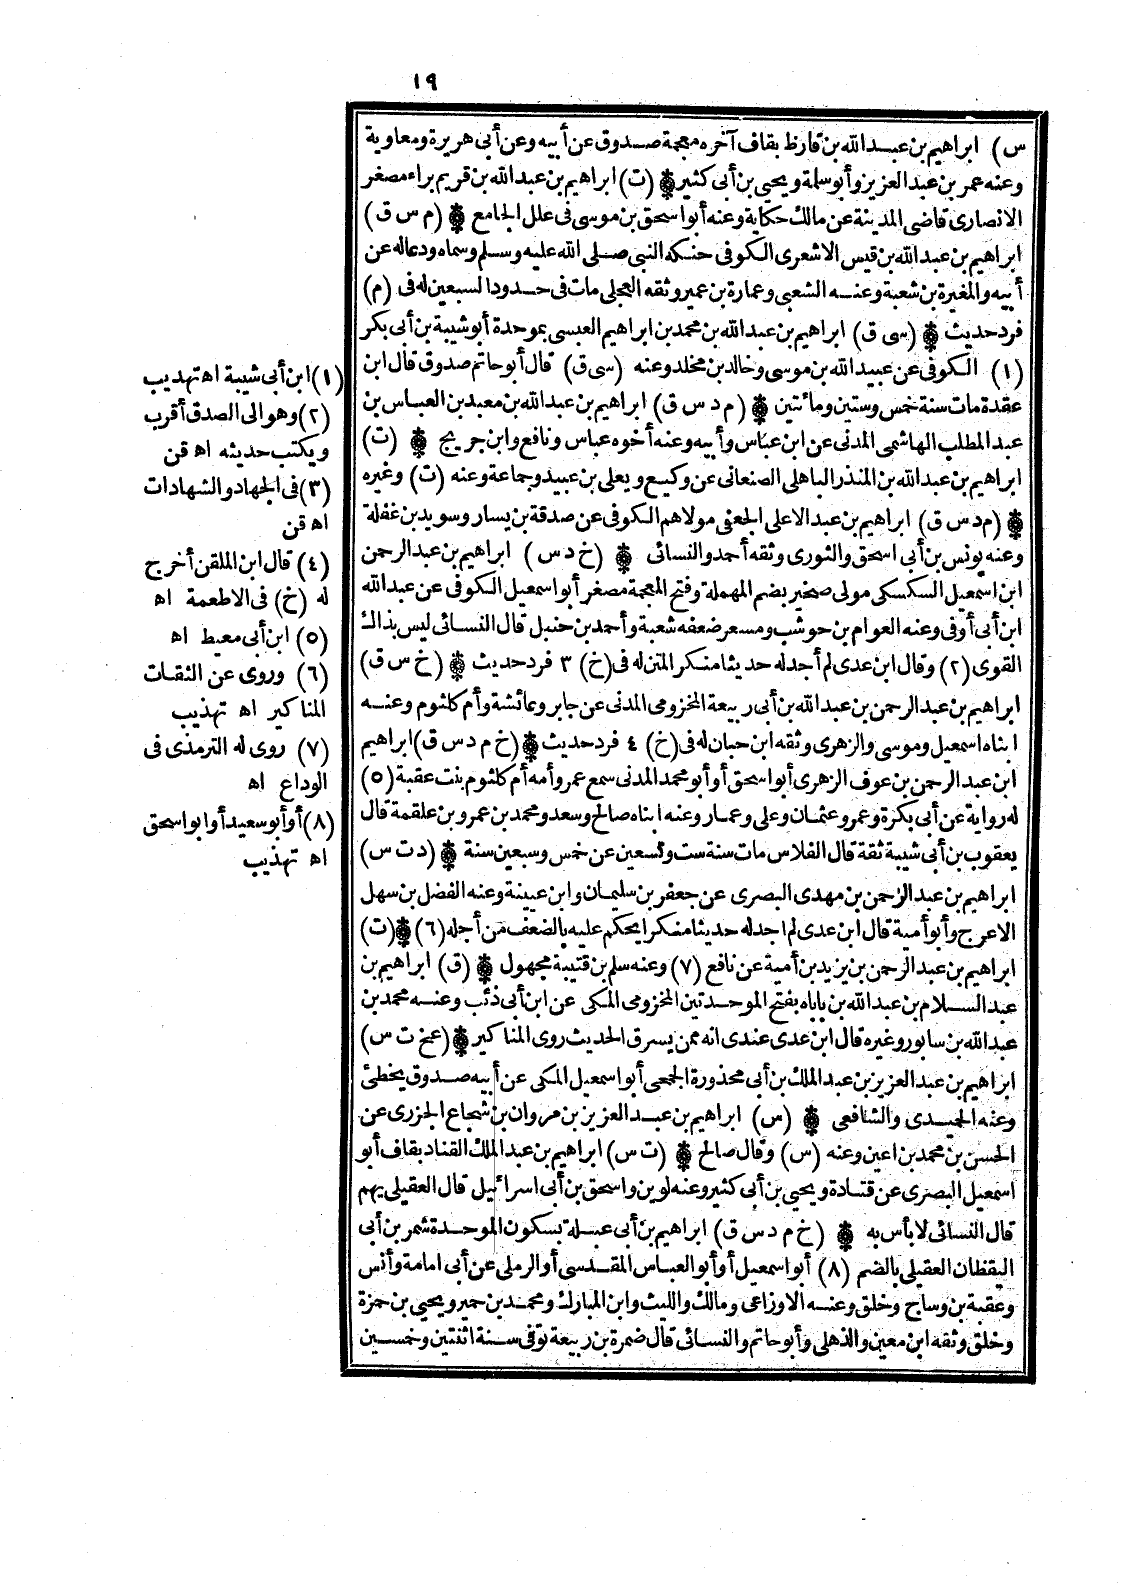 ١٩
س) ابراهيم بن عبد الله بن قارظ بقاف آخره معجمة صدوق عن أبيه وعن أبى هريرة ومعاوية
وعنه عمر بن عبد العزيز وأبو سلمة ويحيى بن أبى كثير (ت) ابراهيم بن عبد الله بن قريم براء مصغر
الانصارى قاضى المدينة عن مالك حكاية وعنه أبو اسحق بن موسى فى علل الجامع (م س ق)
ابراهيم بن عبد الله بن قيس الاشعرى الكوفى حنكه النبى صلى الله عليه وسلم وسماه ودعا له عن
أبيه والمغيرة بن شعبة وعنه الشعبى وعمارة بن عمير وثقه العجلى مات فى حدود السبعين له فى (م)
فرد حديث (سى ق) ابراهيم بن عبد الله بن محمد بن ابراهيم العبسى بموحدة أبو شيبة بن أبى بكر
(١) الكوفى عن عبيد الله بن موسى وخالد بن مخلد وعنه (سى ق) قال أبو حاتم صدوق قال ابن
عقدة مات سنة خمس وستين ومائتين (م د س ق) ابراهيم بن عبد الله بن معبد بن العباس بن
عبد المطلب الهاشمى المدنى عن ابن عباس وأبيه وعنه أخوه عباس ونافع وابن جريج (ت)
ابراهيم بن عبد الله بن المنذر الباهلى الصنعانى عن وكيع ويعلى بن عبيد وجماعة وعنه (ت) وغيره
(م د س ق) ابراهيم بن عبد الاعلى الجعفى مولاهم الكوفى عن صدقة بن يسار وسويد بن غفلة
وعنه يونس بن أبى اسحق والثورى وثقه أحمد والنسائى (خ د س) ابراهيم بن عبد الرحمن
ابن اسمعيل السكسكى مولى صخير بضم المهملة وفتح المعجمة مصغر أبو اسمعيل الكوفى عن عبد الله
ابن أبى أوفى وعنه العوام بن حوشب ومسعر ضعفه شعبة وأحمد بن حنبل قال النسائى ليس بذاك
القوى (٢) وقال ابن عدى لم أجد له حديثا منكر المتن له فى (خ) ٣ فرد حديث (خ س ق)
ابراهيم بن عبد الرحمن بن عبد الله بن أبى ربيعة المخزومى المدنى عن جابر وعائشة وأم كلثوم وعنه
ابناه اسمعيل وموسى والزهرى وثقه ابن حبان له فى (خ) ٤ فرد حديث (خ م د س ق) ابراهيم
ابن عبد الرحمن بن عوف الزهرى أبو اسحق أو أبو محمد المدنى سمع عمر وأمه أم كلثوم بنت عقبة (٥)
له رواية عن أبى بكرة وعمر وعثمان وعلى وعمار وعنه ابناه صالح وسعد ومحمد بن عمرو بن علقمة قال
يعقوب بن أبى شيبة ثقة قال الفلاس مات سنة ست وتسعين عن خمس وسبعين سنة (د ت س)
ابراهيم بن عبد الرحمن بن مهدى البصرى عن جعفر بن سليمان وابن عيينة وعنه الفضل بن سهل
الاعرج وأبو أمية قال ابن عدى لم اجد له حديثا منكرا يحكم عليه بالضعف من أجله (٦) (ت)
ابراهيم بن عبد الرحمن بن يزيد بن أمية عن نافع (٧) وعنه سلم بن قتيبة مجهول (ق) ابراهيم بن
عبد السلام بن عبد الله بن باباه بفتح الموحدتين المخزومى المكى عن ابن أبى ذئب وعنه محمد بن
عبد الله بن سابور وغيره قال ابن عدى عندى انه ممن يسرق الحديث روى المناكير (عخ ت س)
ابراهيم بن عبد العزيز بن عبد الملك بن أبى محذورة الجمحى أبو اسمعيل المكى عن أبيه صدوق يخطئ
وعنه الحميدى والشافعى (س) ابراهيم بن عبد العزيز بن مروان بن شجاع الجزرى عن
الحسن بن محمد بن اعين وعنه (س) وقال صالح (ت س) ابراهيم بن عبد الملك القناد بقاف أبو
اسمعيل البصرى عن قتادة ويحيى بن أبى كثير وعنه لوين واسحق بن أبى اسرائيل قال العقيلى يهم
قال النسائى لا بأس به (خ م د س ق) ابراهيم بن أبى عبلة بسكون الموحدة شمر بن أبى
اليقظان العقيلى بالضم (٨) أبو اسمعيل أو أبو العباس المقدسى أو الرملى عن أبى امامة وأنس
وعقبة بن وساج وخلق وعنه الاوزاعى ومالك والليث وابن المبارك ومحمد بن حمير ويحيى بن حمزة
وخلق وثقه ابن معين والذهلى وأبو حاتم والنسائى قال ضمرة بن ربيعة توفى سنة اثنتين وخمسين
(١) ابن أبى شيبة اه تهذيب
(٢) وهو الى الصدق أقرب
ويكتب حديثه اه قن
(٣) فى الجهاد والشهادات
اه قن
(٤) قال ابن الملقن أخرج
له (خ) فى الاطعمة اه
(٥) ابن أبى معيط اه
(٦) وروى عن الثقات
المناكير اه تهذيب
(٧) روى له الترمذى فى
الوداع اه
(٨) أو أبو سعيد أو ابو اسحق
اه تهذيب